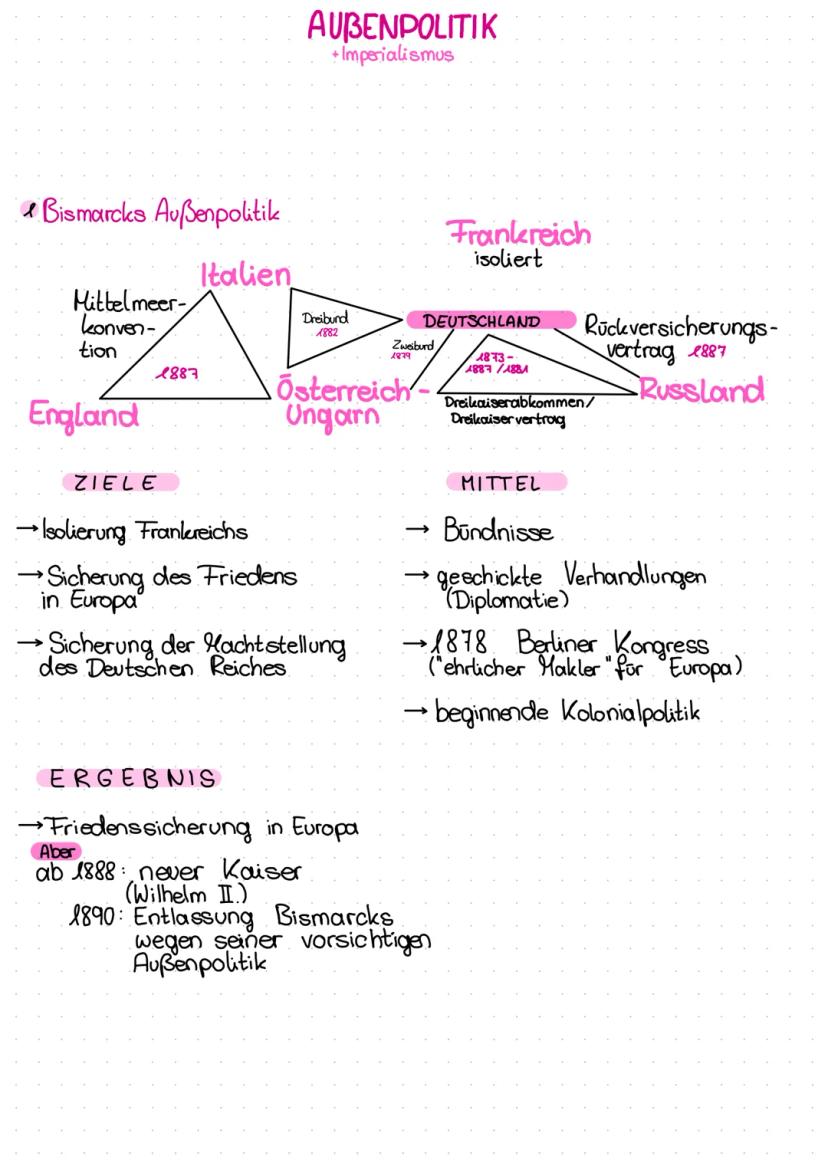 AUßENPOLITIK
+ Imperialismus
1 Bismarcks Außenpolitik
Frankreich
isoliert
Italien
Mittelmeer-
konven-
tion
1887
England
Dreibund
1882
DEUTSCHLAND
Zweibund
1879
Österreich-
Ungarn
1873-
1887/1881
Dreikaiserabkommen/
Dreikaiservertrag
Rückversicherungs-
vertrag 1887
Russland
ZIELE
→ Isolierung Frankreichs
→ Sicherung des Friedens
in Europa
→ Sicherung der Machtstellung
des Deutschen Reiches
MITTEL
→ Bündnisse
→ geschickte Verhandlungen
(Diplomatie)
→ 1878 Berliner Kongress
("ehrlicher Makler" für Europa)
→ beginnende Kolonialpolitik
ERGEBNIS
→ Friedenssicherung in Europa
Aber
ab 1888: neuer Kaiser
(Wilhelm II.)
1890: Entlassung Bismarcks
wegen seiner vorsichtigen
Außenpolitik